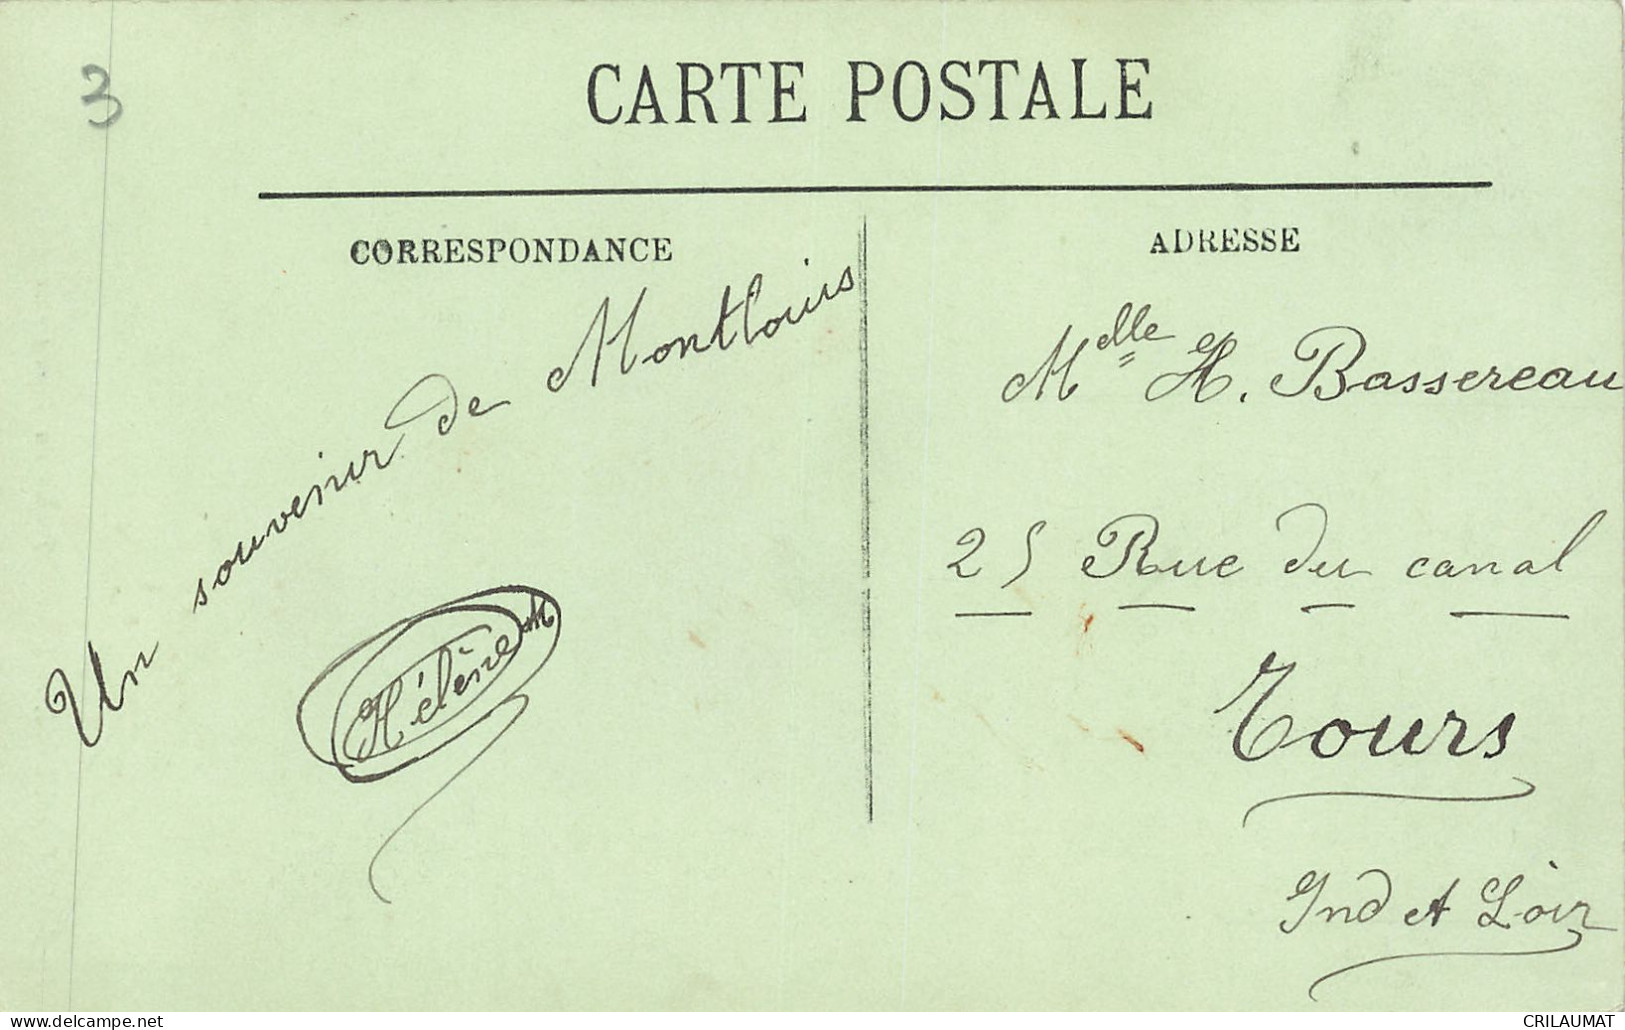 3
CARTE POSTALE
CORRESPONDANCE
Un souvenir de Montlouis
Hélène M
ADRESSE
Melle H. Bassereau
25 Rue du canal
Tours
Ind et Loir
www.delcampe.net
CRILAUMAT